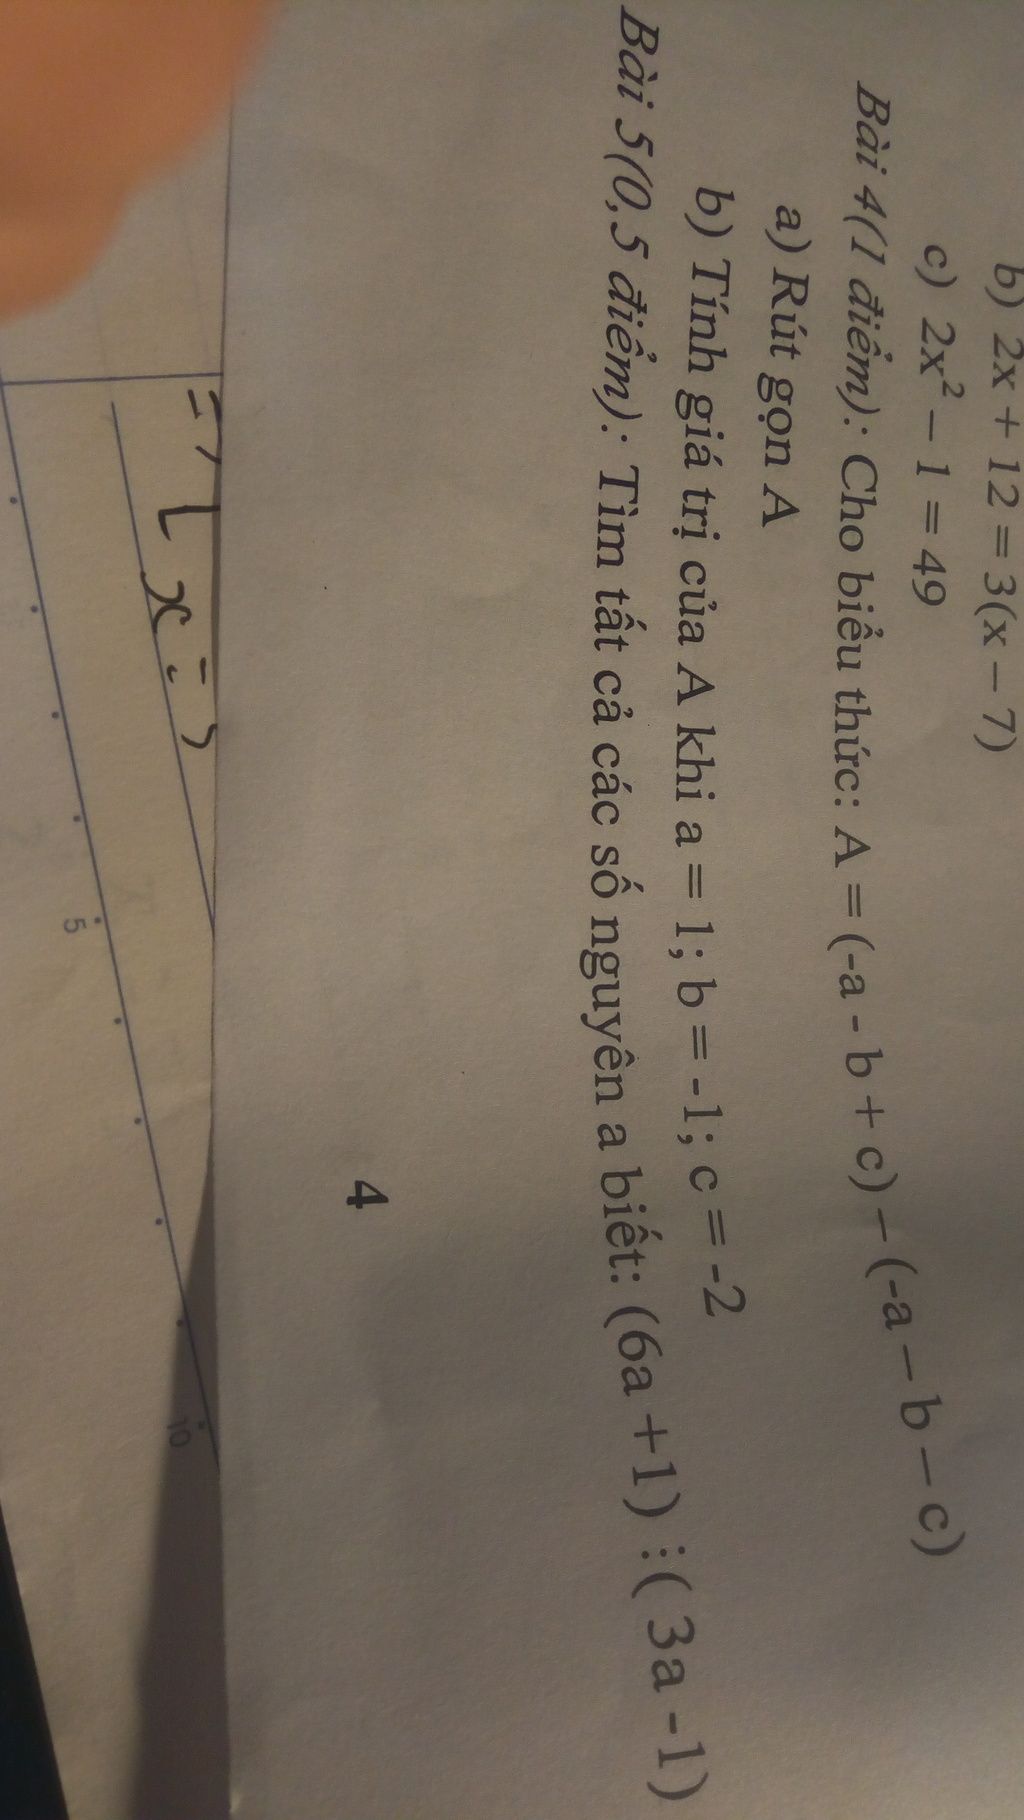 b) 2x + 12 = 3(x – 7)
c) 2x² – 1 = 49
Bài 4(1 điểm): Cho biểu thức: A = (-a - b + c) – (-a – b – c)
a) Rút gọn A
b) Tính giá trị của A khi a = 1; b = -1; c = -2
Bài 5(0,5 điểm): Tìm tất cả các số nguyên a biết: (6a +1) ⋮ ( 3a -1)
4
x =
5
10